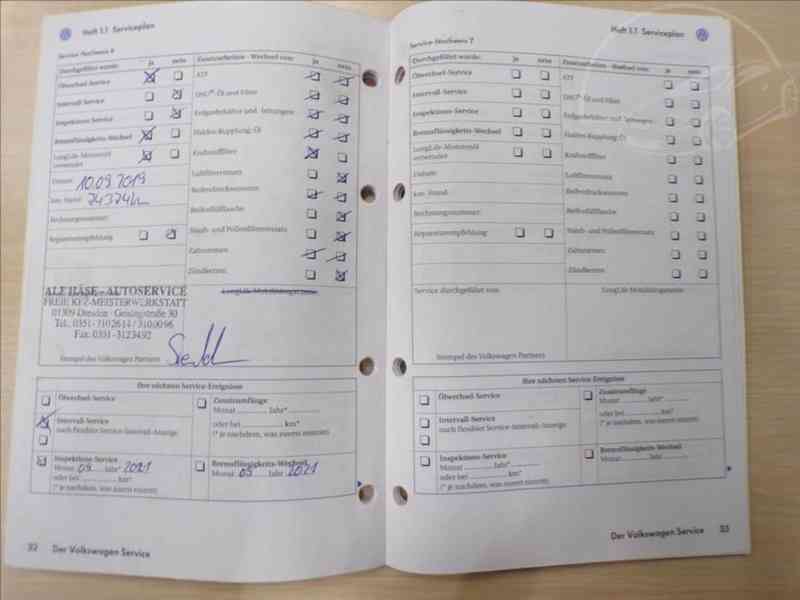 Heft 1.1 Serviceplan
Service-Nachweis 6
Durchgeführt wurde: ja nein
Ölwechsel-Service
Intervall-Service
Inspektions-Service
Bremsflüssigkeits-Wechsel
LongLife-Motorenöl
verwendet
Datum: 10.09.2019
km-Stand:
Rechnungsnummer:
Reparaturempfehlung
Zusatzarbeiten - Wechsel von: ja nein
ATF
DSG®-Öl und Filter
Erdgasbehälter und -leitungen
Haldex-Kupplung: Öl
Kraftstofffilter
Luftfiltereinsatz
Reifendrucksensoren
Reifenfüllflasche
Staub- und Pollenfiltereinsatz
Zahnriemen
Zündkerzen
ALF HÄSE - AUTOSERVICE
FREIE KFZ-MEISTERWERKSTATT
01309 Dresden · Geisingstraße 30
Tel.: 0351-3102614 / 3100096
Fax: 0351-3123492
LongLife-Mobilitätsgarantie
Stempel des Volkswagen Partners
Ihre nächsten Service-Ereignisse
Ölwechsel-Service
Intervall-Service
nach flexibler Service-Intervall-Anzeige
Inspektions-Service
Monat 09 Jahr* 2021
oder bei km*
(* je nachdem, was zuerst eintritt)
Zusatzumfänge
Monat Jahr*
oder bei km*
(* je nachdem, was zuerst eintritt)
Bremsflüssigkeits-Wechsel
Monat 09 Jahr 2021
32 Der Volkswagen Service
Heft 1.1 Serviceplan
Service-Nachweis 7
Durchgeführt wurde: ja nein
Ölwechsel-Service
Intervall-Service
Inspektions-Service
Bremsflüssigkeits-Wechsel
LongLife-Motorenöl
verwendet
Datum:
km-Stand:
Rechnungsnummer:
Reparaturempfehlung
Zusatzarbeiten - Wechsel von: ja nein
ATF
DSG®-Öl und Filter
Erdgasbehälter und -leitungen
Haldex-Kupplung: Öl
Kraftstofffilter
Luftfiltereinsatz
Reifendrucksensoren
Reifenfüllflasche
Staub- und Pollenfiltereinsatz
Zahnriemen
Zündkerzen
Service durchgeführt von:
LongLife-Mobilitätsgarantie
Stempel des Volkswagen Partners
Ihre nächsten Service-Ereignisse
Ölwechsel-Service
Intervall-Service
nach flexibler Service-Intervall-Anzeige
Inspektions-Service
Monat Jahr*
oder bei km*
(* je nachdem, was zuerst eintritt)
Zusatzumfänge
Monat Jahr*
oder bei km*
(* je nachdem, was zuerst eintritt)
Bremsflüssigkeits-Wechsel
Monat Jahr
Der Volkswagen Service 33